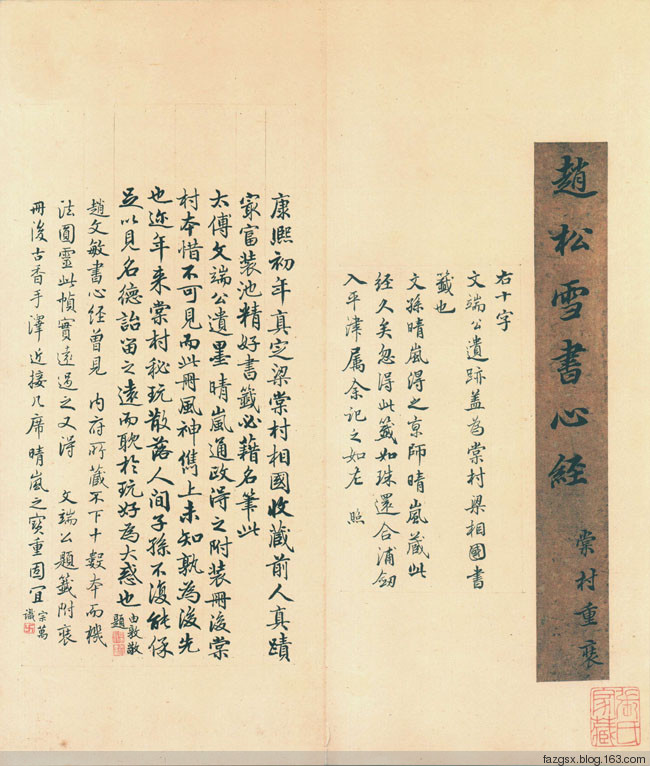 趙松雪書心經
棠村重裝
右十字
文端公遺跡蓋為棠村梁相國書
籤也
文孫晴嵐得之京師晴嵐藏此
經久矣忽得此籤如珠還合浦劍
入平津屬余記之如左 照
康熙初年真定梁棠村相國收藏前人真蹟
寂富裝池精好書籤必藉名筆此
太傅文端公遺墨晴嵐通政得之附裝冊後棠
村本惜不可見而此冊風神儁上未知孰為後先
也迩年来棠村秘玩散落人間子孫不復能保
足以見名德詒留之遠而耽於玩好為大惑也
由敦敬
題
趙文敏書心經曾見 内府所藏不下十數本而機
法圓靈此幀實遠過之又得 文端公題籤附裒
冊後古香手澤近接几席晴嵐之寶重固宜
宗萬
識
張氏
家藏
fazgsx.blog.163.com